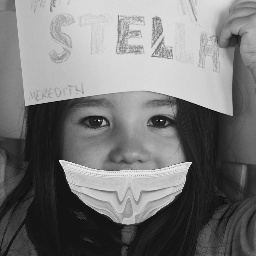 STELLA
MEREDITH